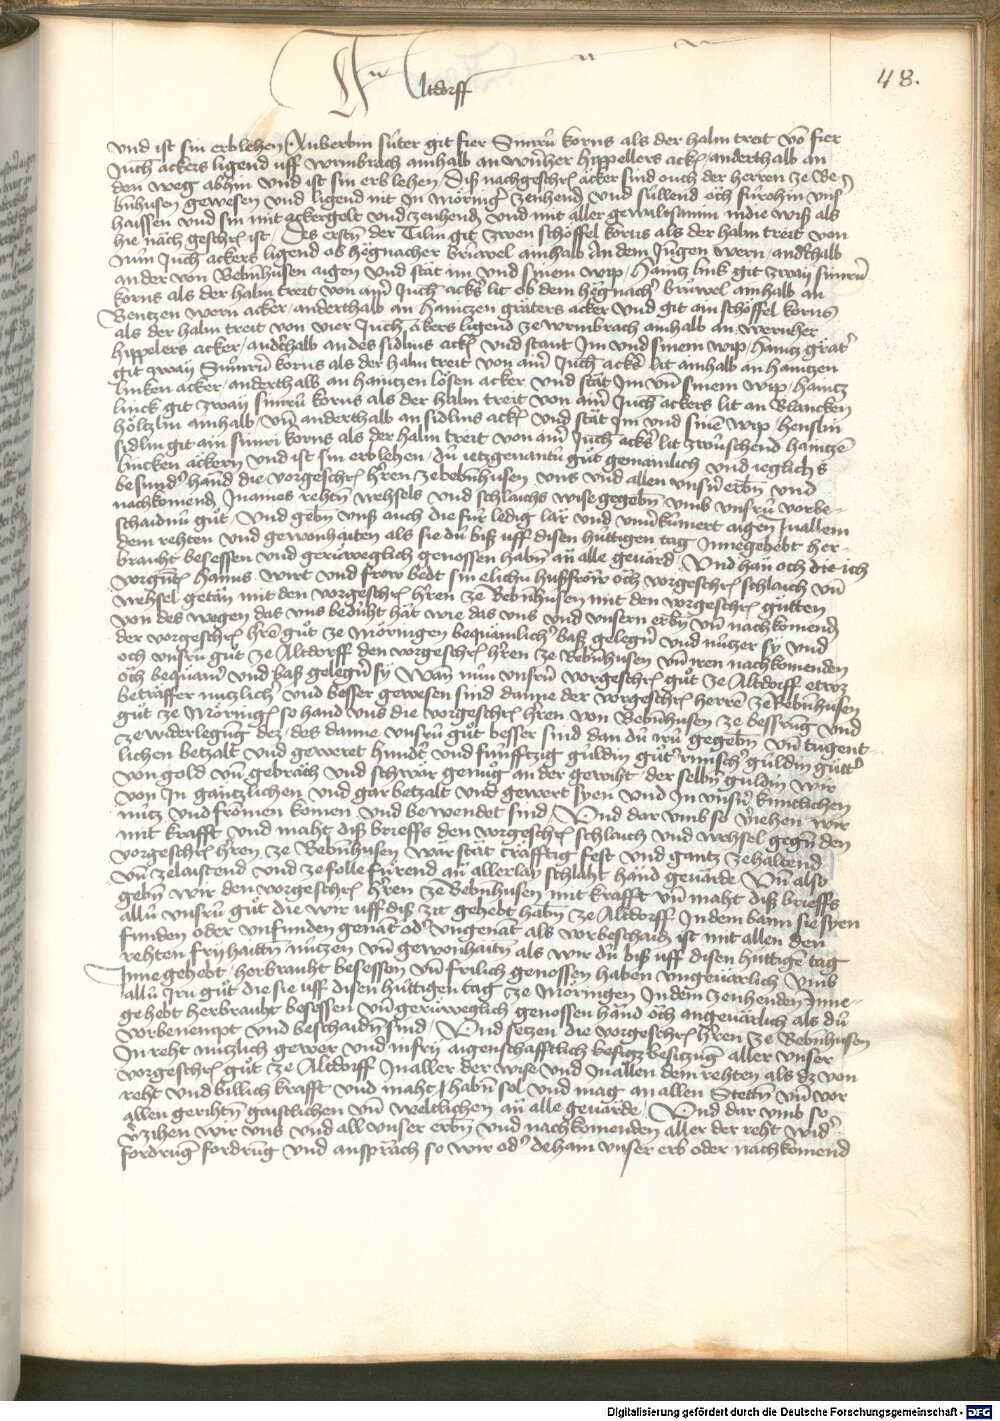 In Altdorff
48.
und ist sin erblehen / Auberlin suter git fier Simrü korns als der halm treit von fier
Juch ackers ligend uff wrmbrach ainhalb an wernher hippellers acker / anderthalb an
den weg abhin und ist sin erblehen / Diß nachgeschr äcker sind ouch der herren ze Be-
buhusen gewesen und ligend mit In möringer zenhend und sullend och fürohin uns
haissen und sin mit ackergelt und zenhend und mit aller gewaltsamin in die wiß als
hie nach geschr ist / Des ersten der Tilm git zwen schöffel korns als der halm treit von
nün Juch ackers ligend ob hegnacher brüwel ainhalb an dem Jungen wern / anderthalb
an der von Bebnhusen aigen und stät im und sinem wip / haintz link git zway simrü
korns als der halm treit von aim Juch ackers lit ob dem hegnacher brüwel ainhalb an
Bentzen wern acker / anderthalb an haintzen gräters acker und git ain schöffel korns
als der halm treit von vier Juch äkers ligend ze wrmbrach ainhalb an wernher
hippelers acker / anderthalb an des sidlins acker und staut Im und sinem wip / haintz gräter
git zway Simrü korns als der halm treit von aim Juch ackers lit ainhalb an haintzen
linken acker / anderthalb an haintzen lösen acker und stät Im und sinem wip / haintz
linck git zway simrü korns als der halm treit von aim Juch ackers lit an Blancken
höltzlin ainhalb / und anderthalb an sidlins acker und stät Im und sinem wip / henslin
sidlin git ain simri korns als der halm treit von aim Juch ackers lit zwüschend haintzen
lincken äckern und ist sin erblehen / Dü ietzgenantü güt gemainlich und ieglichs
besunder hand die vorgeschr herren ze bebnhusen uns und allen unsern erben und
nachkomend Innamen rehten wehsels und schlachs wise gegeben umb unsrü vorbe-
schaidnü güt / Und geben unß auch die für ledig lär und unverkümert aigen In allem
dem rehten und gewonhaiten als sie dü biß uff disen hüttigen tag Innegehebt her-
braucht besessen und gerüweglich genossen haben än alle geuärd / Und hän och die ich
vorgnt hanns wirt und frow bedt sin elichü hußfröw och vorgeschr schlaich und
wehsel getän mit den vorgeschr herren ze Bebnhusen mit den vorgeschr gütten
von des wegen das uns beduht hät wie das uns und unsern erben und nachkomend
der vorgeschr herren güt ze Möringen bequämlicher baß gelegen und nützer sy und
och unsrü güt ze Altdorff den vorgeschr herren ze Bebnhusen und iren nachkomenden
och bequämer und baß gelegen sy Wan nun unsrü vorgeschr güt ze Altdorff etwz
beträffer nutzlicher und besser gewesen sind danne der vorgeschr herren ze Bebnhusen
güt ze Möringen so hand uns die vorgeschr herren von Bebnhusen ze bessrung und
ze widerlegung dez / des danne unsrü güt besser sind dan dü irü gegeben und tugent-
lichen betzalt und geweret hundert und fünfftzig guldin güter rinischer guldin gütter
von gold und gebräch und schwär genüg an der gewiht / der selben guldin wir
von In gäntzlichen und gar betzalt und gewert syen und In unsern kuntlichen
nutz und fromen komen und bewendet sind / Und dar umb so verjehen wir
mit krafft und maht diß brieffs den vorgeschr schlaich und wehsel gegen den
vorgeschr herren ze Bebnhusen wär stät cräfftig fest und gantz ze haltend
und ze laistend und ze folle fürend än allerlay schlaht hand geuärde / Und also
geben wir den vorgeschr herren ze Bebnhusen mit krafft und maht diß brieffs
allü unsrü güt die wir uff diß zit gehebt haben ze Altdorff In dem bann sie syen
funden oder unfunden genät oder ungenät als vorbeschaid ist mit allen den
rehten fryhaiten nützen und gewonhaiten als wir dü biß uff disen hüttigen tag
Innegehebt / herbrauht besessen und frilich genossen haben ungeuärlich umb
allü Irü güt die sie uff disen hüttigen tag ze Möringen In dem zenhenden Inne-
gehebt herbrauht besessen und gerüweglich genossen händ och angeuärlich als dü
vorbenempt und beschaiden sind / Und setzen die vorgeschr herren ze Bebnhusen
In reht nützlich gewer und in fry aigenschafftlich besitzung aller unser
vorgeschr güt ze Altdorff In aller der wise und In allen dem rehten als dz von
reht und billich krafft und maht haben sol und mag an allen Stetten und vor
allen gerihten gaistlichen und weltlichen än alle geuärde / Und dar umb so
verzihen wir uns und all unser erben und nachkomenden aller der reht wider
fordrung fordrung und ansprach so wir oder dehain unser erb oder nachkomend
Digitalisierung gefördert durch die Deutsche Forschungsgemeinschaft - DFG